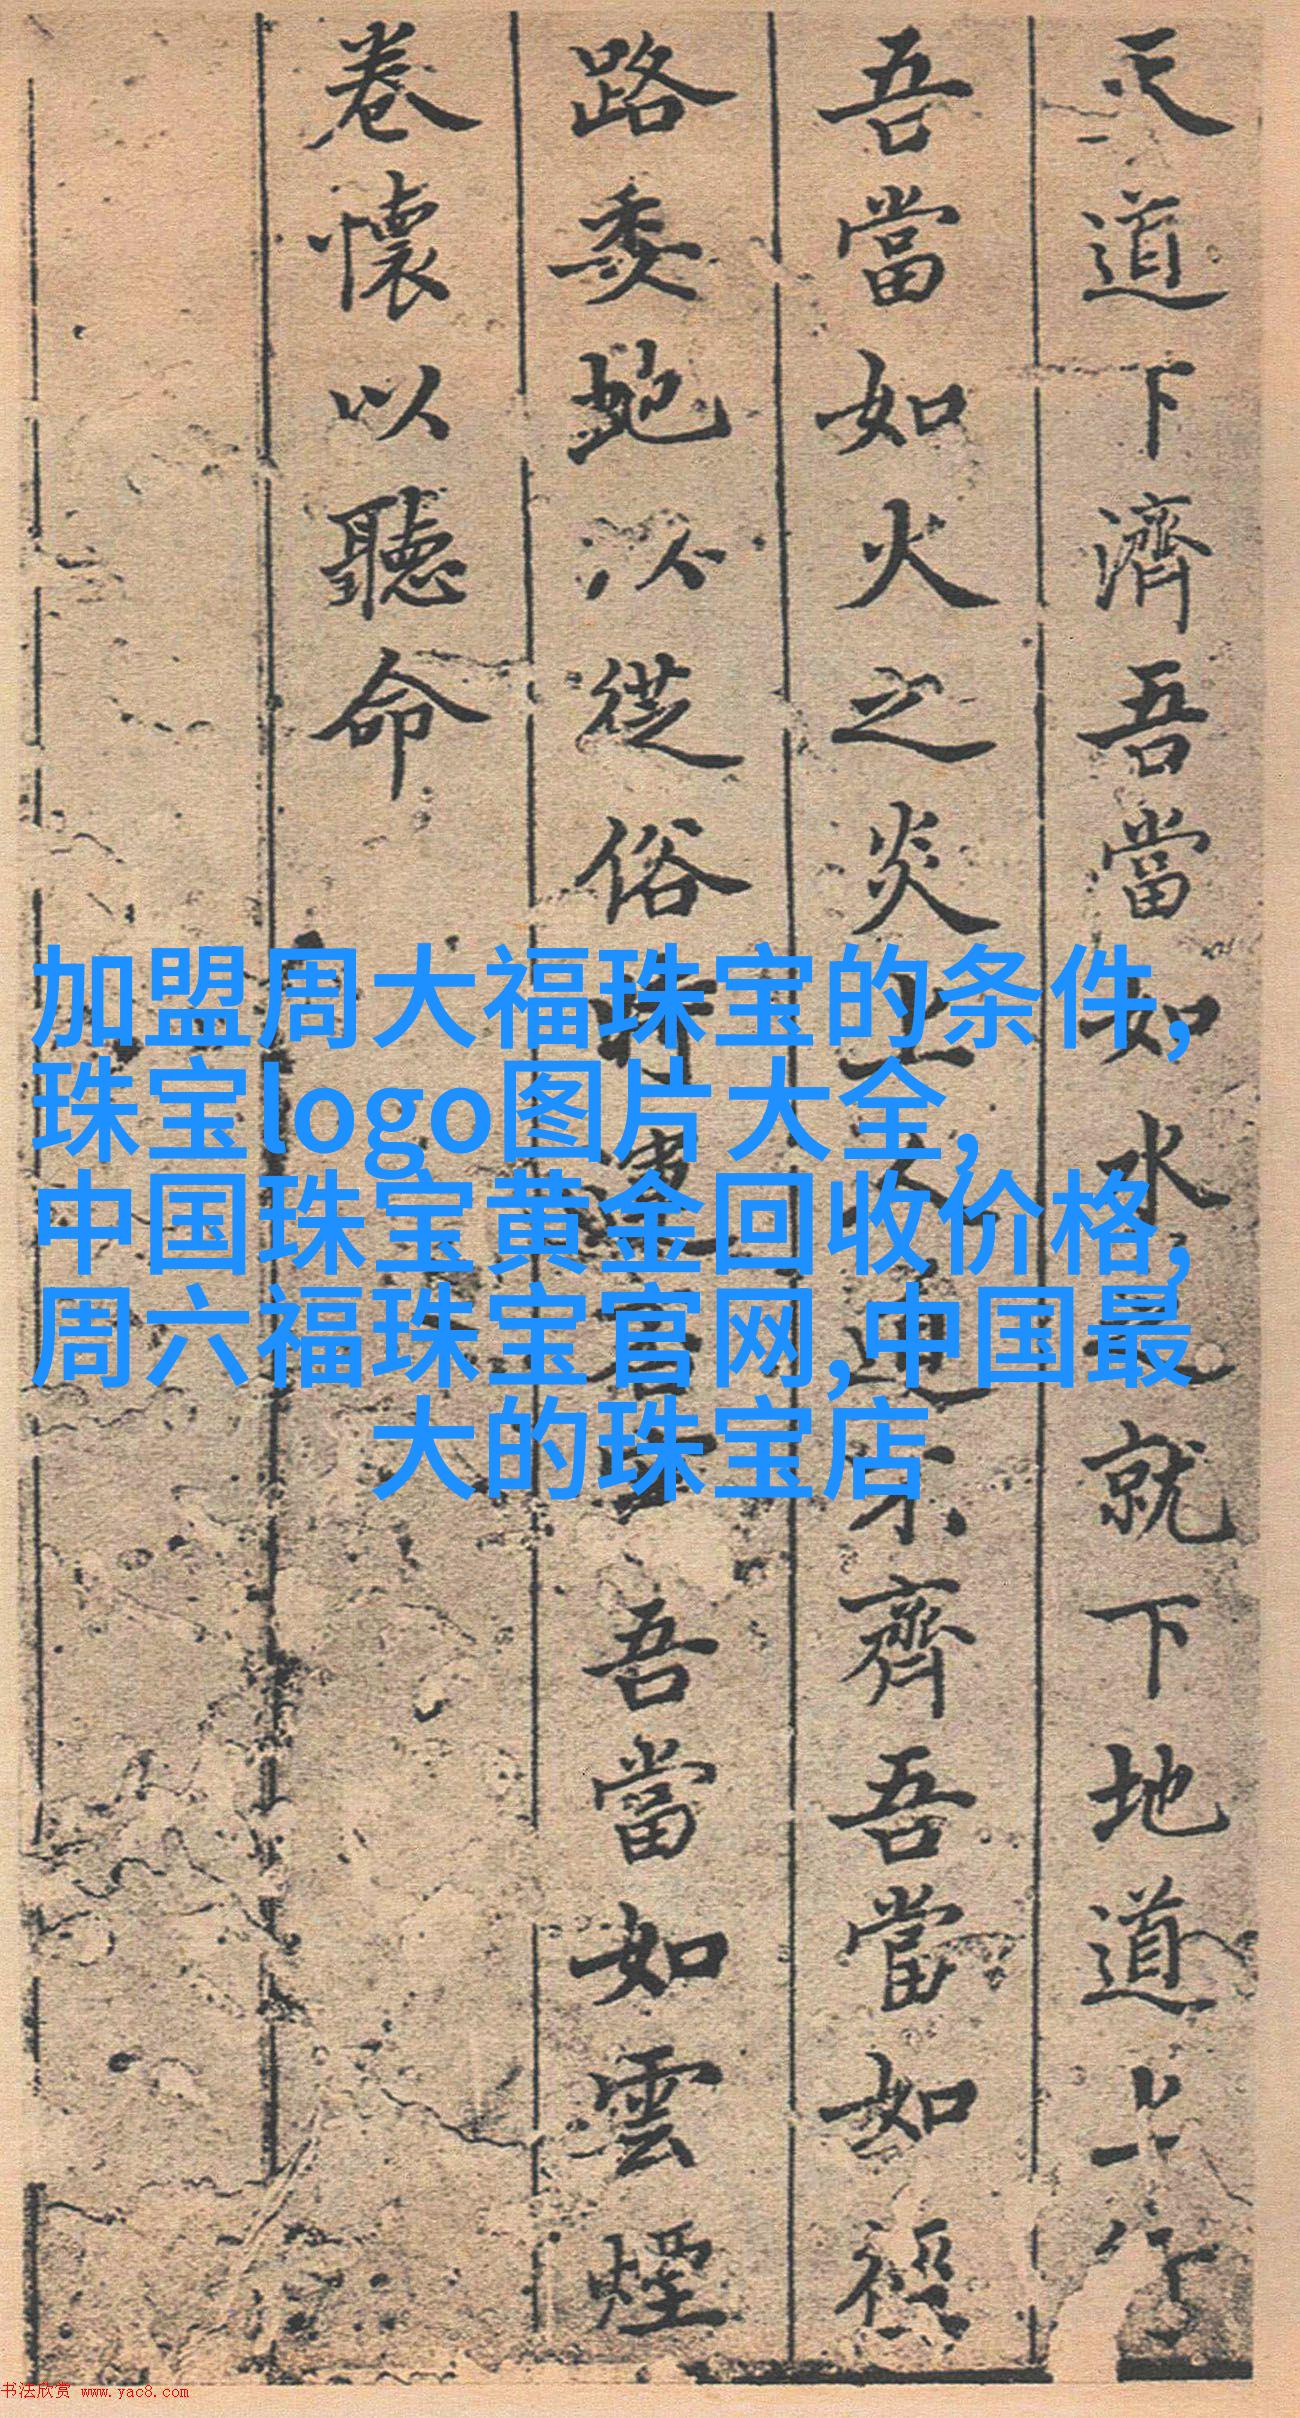 天道下濟吾當如水就下地道上行
吾當如火之炎上人道不齊吾當如徑
路委虵以從俗時違吾當如雲煙
卷懷以聽命
加盟周大福珠宝的条件,
珠宝logo图片大全,
中国珠宝黄金回收价格,
周六福珠宝官网,中国最
大的珠宝店
书法欣赏 www.yac8.com